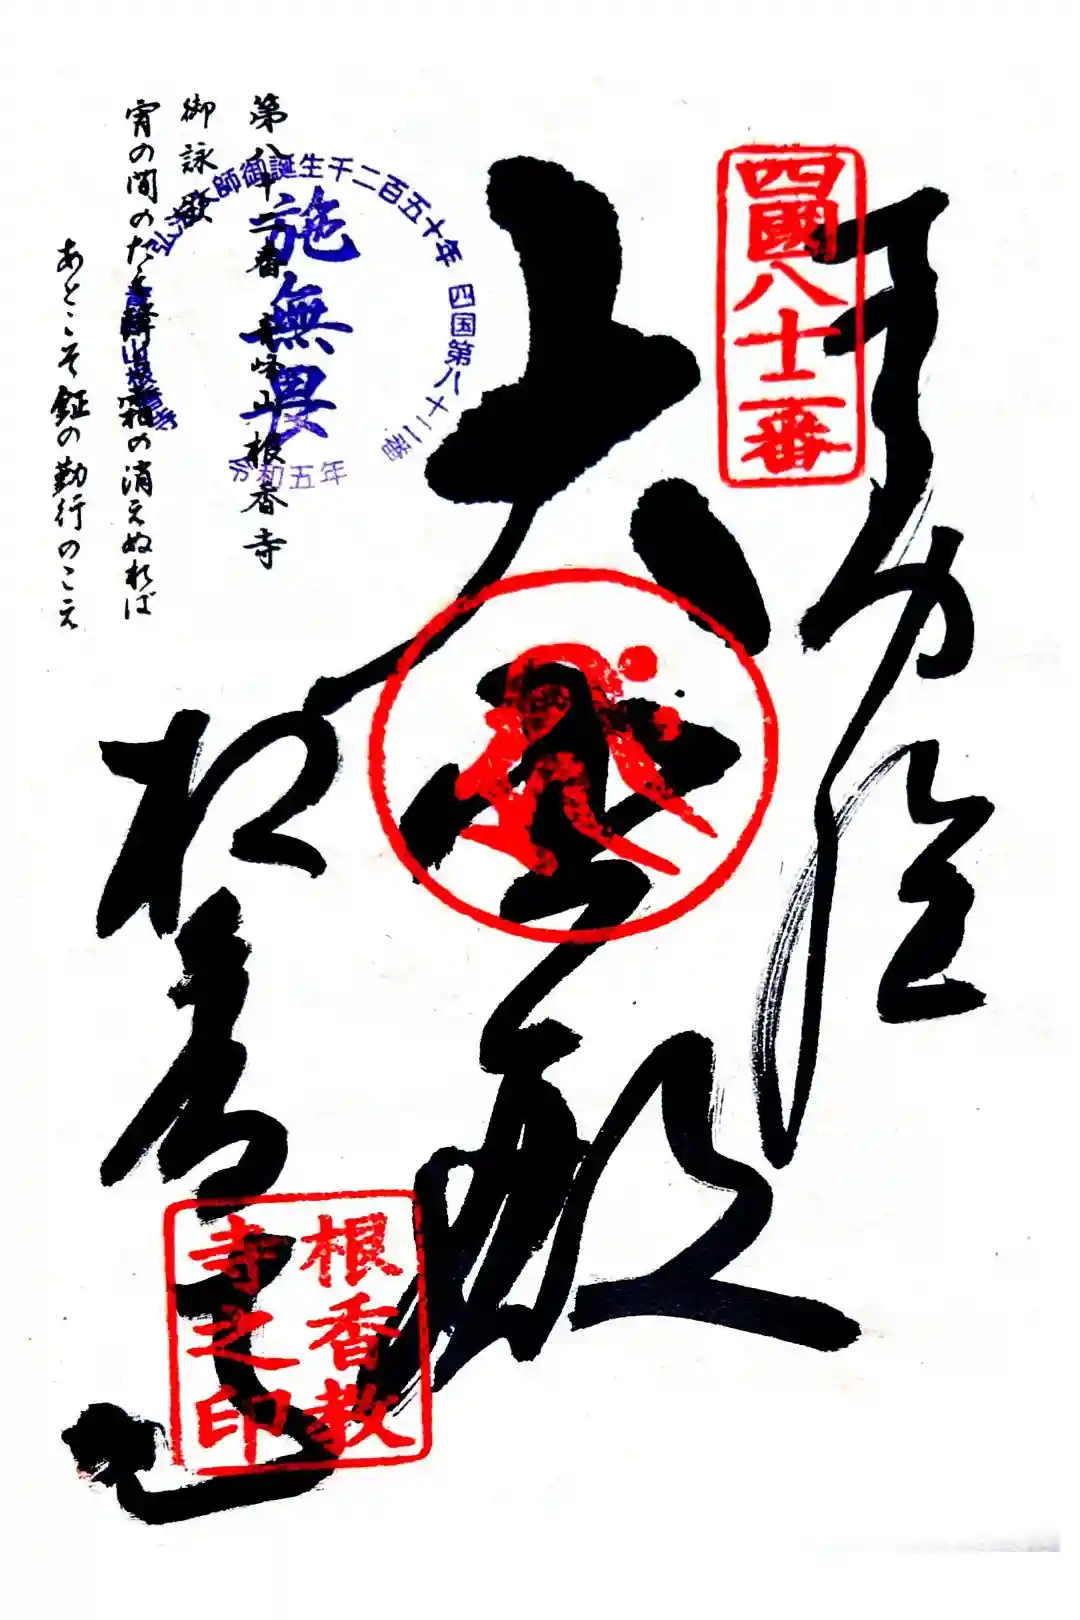 奉納経
四國八十二番
大悲殿
根香寺
根香教
寺之印
第八十二番 青峰山根香寺
御詠歌
宵の間のたえ降る霜の消えぬれば
あとこそ鉦の勤行のこえ
弘法大師御誕生千二百五十年 四国第八十二番
施無畏
令和五年
青峰山根香寺